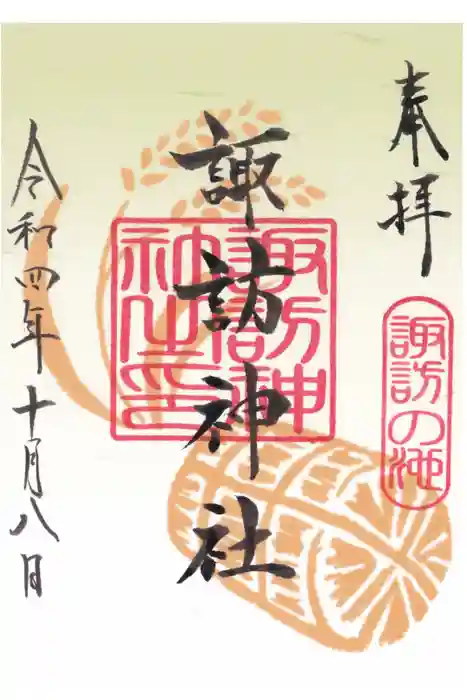 奉拝
諏訪の池
諏訪神社
諏訪神社印
令和四年十月八日